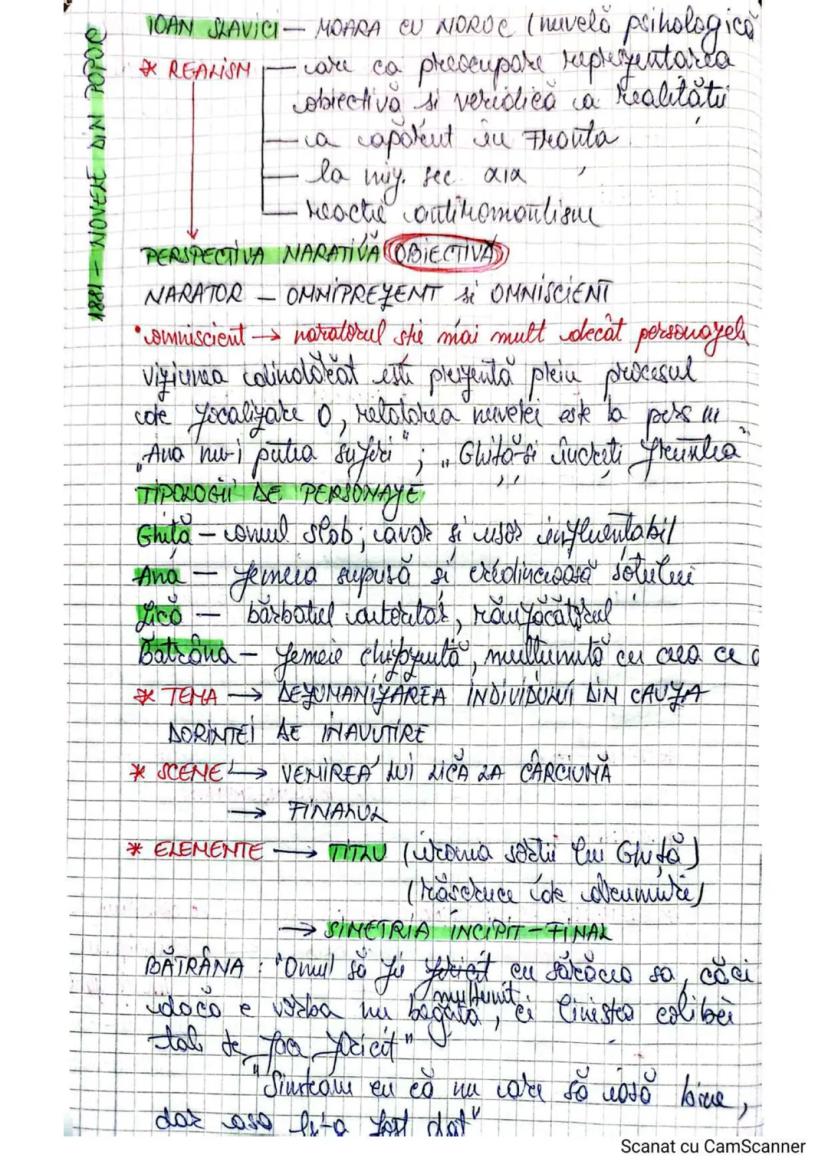 1881 – NUVELE DIN POPOR
IOAN SLAVICI – MOARA CU NOROC (nuvelă psihologică
* REALISM – care ca preocupare reprezentarea
obiectivă și veridică a realității
– a apărut în Franța
– la mij. sec XIX
– reacție antiromantism
PERSPECTIVA NARATIVĂ OBIECTIVĂ
NARATOR – OMNIPREZENT și OMNISCIENT
• omniscient → naratorul știe mai mult decât personajele
viziunea dindărăt este prezentă prin procesul
de focalizare 0, relatarea nuvelei este la pers III
„Ana nu-i putea suferi”; „Ghiță-și încreți fruntea”
TIPOLOGII DE PERSONAJE
Ghiță – omul slab; avar și ușor influențabil
Ana – femeia supusă și credincioasă soțului
Lică – bărbatul autoritar, răufăcătorul
Bătrâna – femeie chibzuită, mulțumită cu ceea ce a
* TEMA → DEZUMANIZAREA INDIVIDULUI DIN CAUZA
DORINȚEI DE ÎNAVUȚIRE
* SCENE → VENIREA LUI LICĂ LA CÂRCIUMĂ
→ FINALUL
* ELEMENTE → TITLU (ironia sorții lui Ghiță)
(răscruce de drumuri)
→ SIMETRIA INCIPIT – FINAL
BĂTRÂNA : "Omul să fie fericit cu sărăcia sa, căci
mulțumit
dacă e vorba nu bogăția, ci liniștea colibei
tale te face fericit"
"Simțeam eu că nu are să iasă bine,
dar așa le-a fost dat"
Scanat cu CamScanner